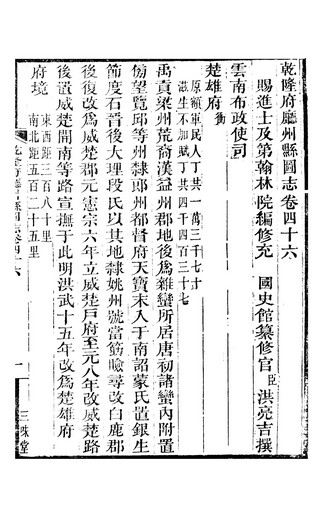 乾隆府廳州縣圖志卷四十六
賜進士及第翰林院編修充　國史館纂修官臣洪亮吉撰
雲南布政使司
楚雄府衝
原額軍民人丁共一萬三千七十
滋生不加賦丁共四千四百三十七
禹貢梁州荒裔漢益州郡地後爲雜蠻所居唐初諸蠻內附置
傍望覽邱等州隸郎州都督府天寶末入于南詔蒙氏置銀生
節度石晉後大理段氏以其地隸姚州號當筯瞼尋改白鹿郡
後復改爲威楚郡元憲宗六年立威楚戶府至元八年改威楚路
後置威楚開南等路宣撫于此明洪武十五年改爲楚雄府
府境
東西距三百八十里
南北距五百二十五里
乾隆府廳州縣圖志卷四十六
一
三味堂